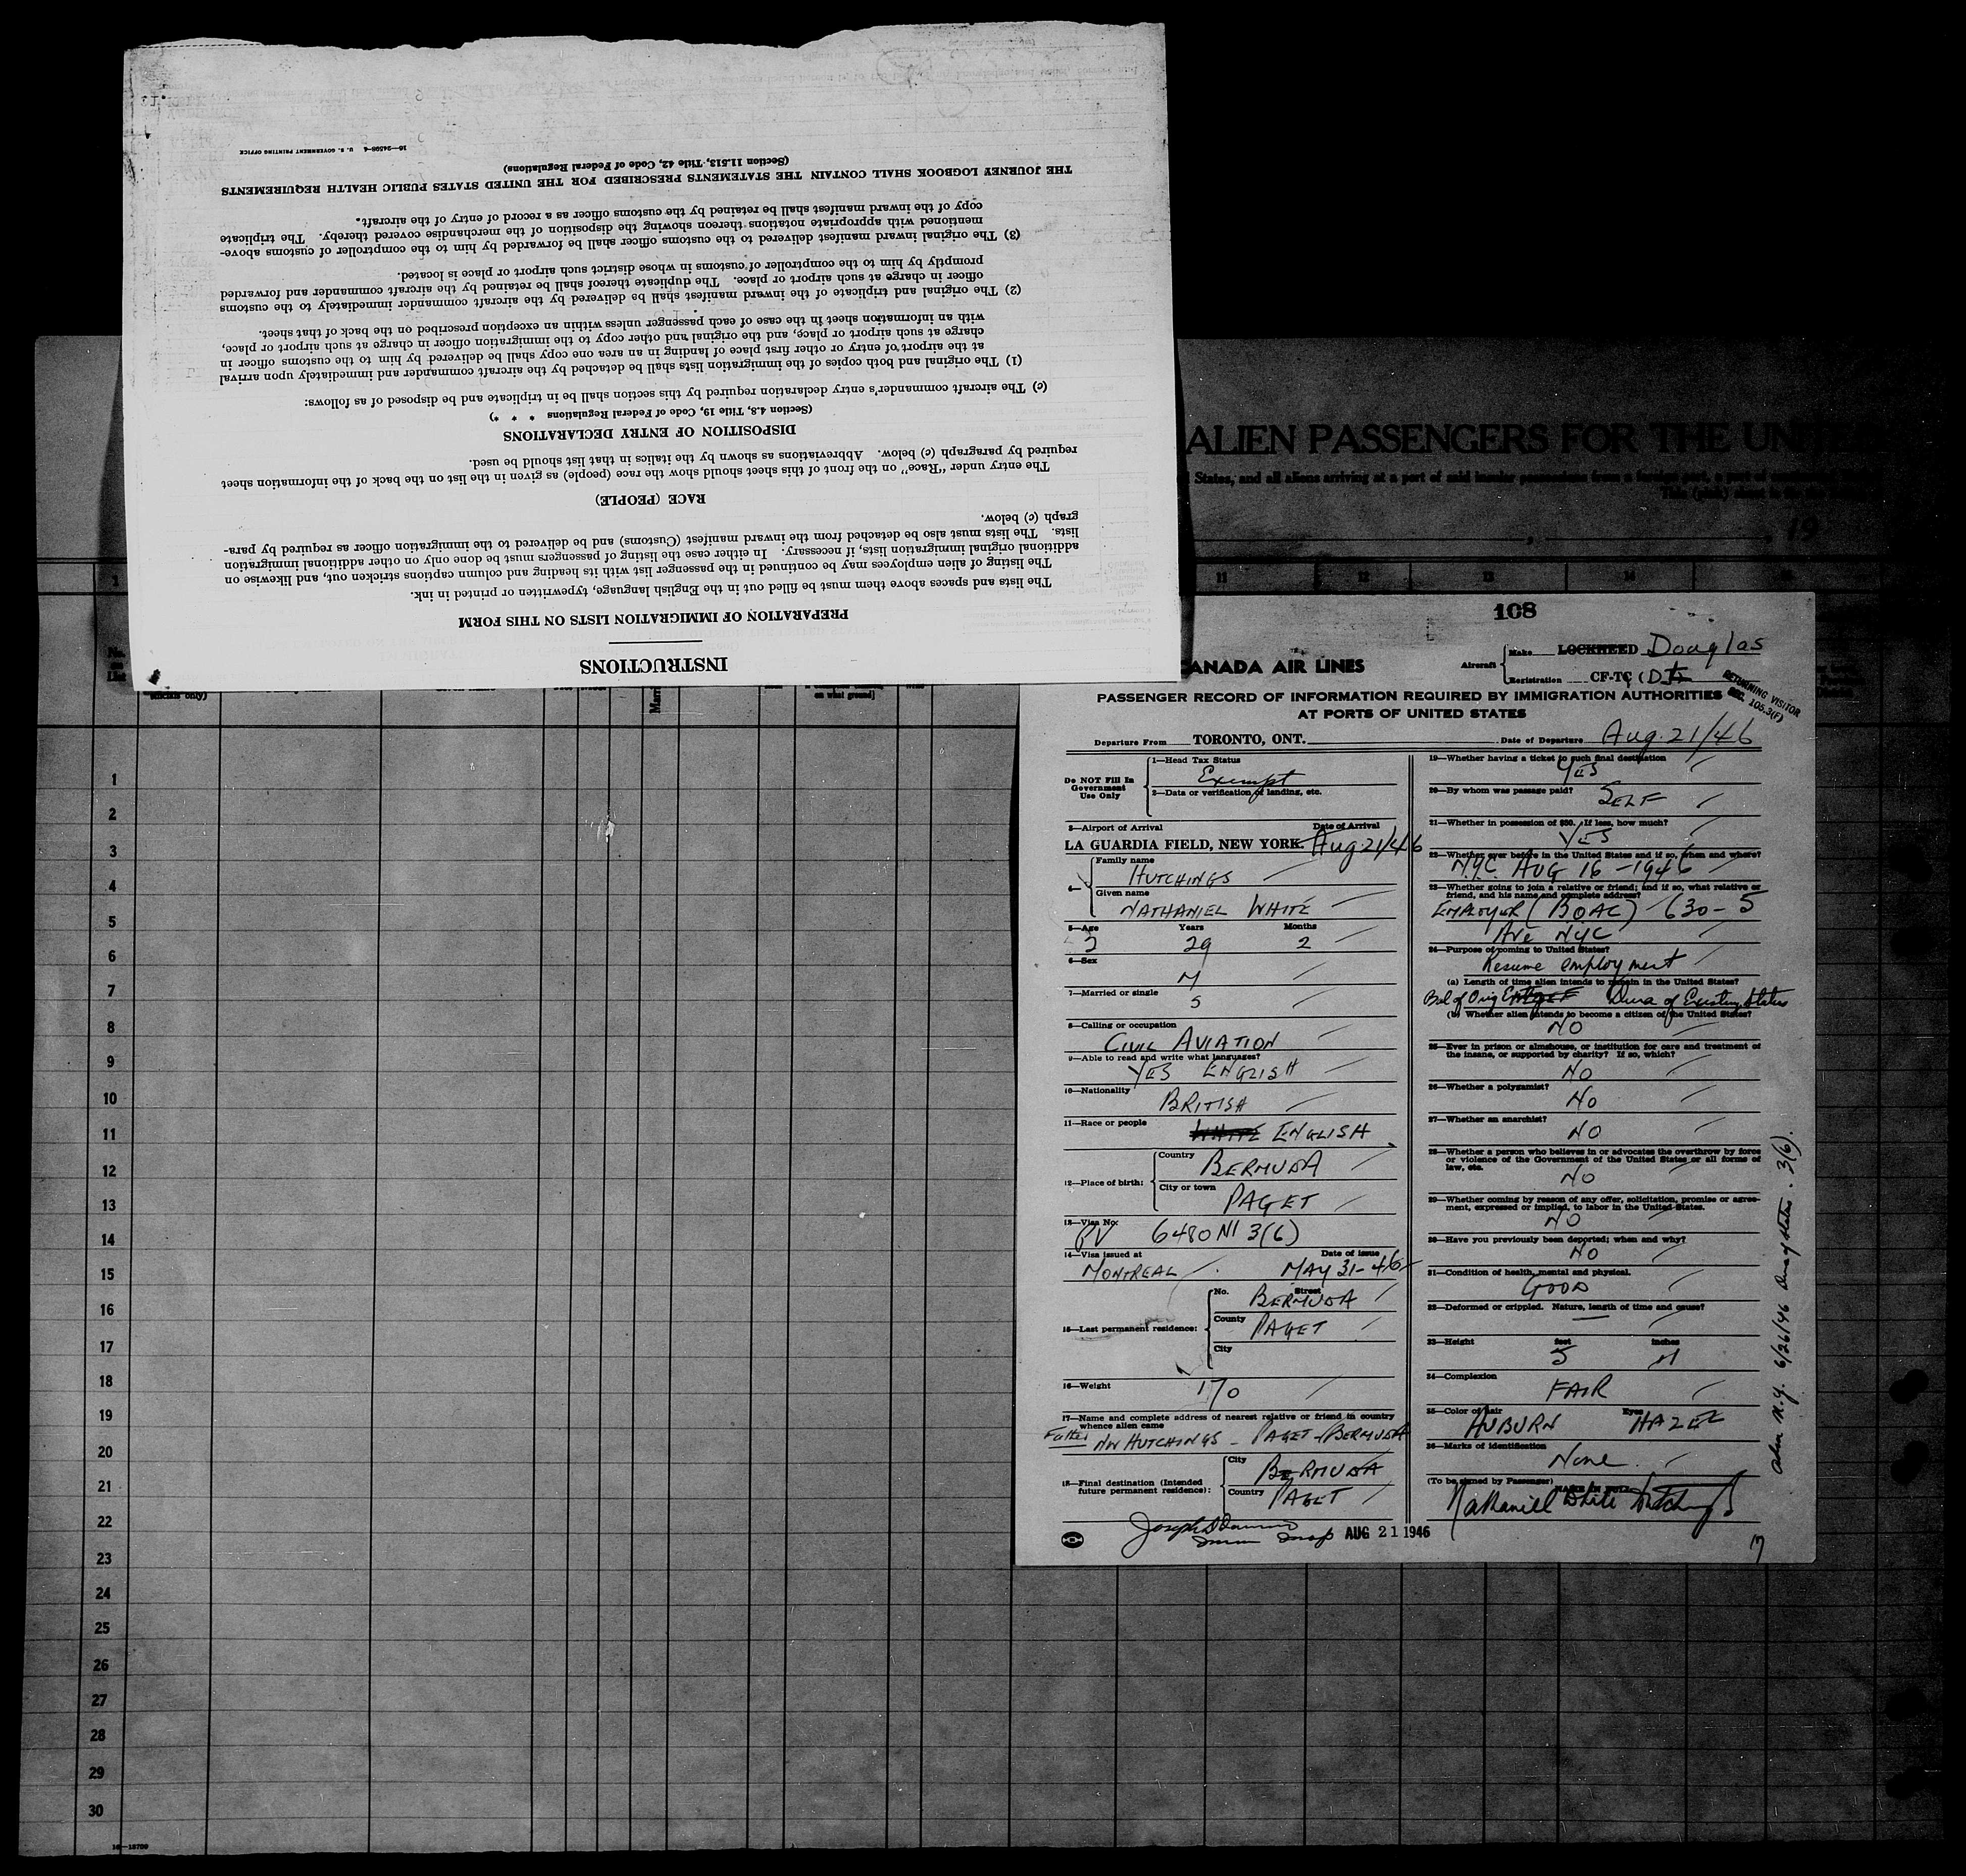 INSTRUCTIONS
PREPARATION OF IMMIGRATION LISTS ON THIS FORM
The lists and spaces above them must be filled out in the English language, typewritten or printed in ink.
The listing of alien employees may be continued in the passenger list with its heading and column captions stricken out, and likewise on
additional original immigration lists, if necessary. In either case the listing of passengers must be done only on other additional immigration
lists. The lists must also be detached from the inward manifest (Customs) and be delivered to the immigration officer as required by para-
graph (c) below.
RACE (PEOPLE)
The entry under "Race" on the front of this sheet should show the race (people) as given in the list on the back of the information sheet
required by paragraph (c) below. Abbreviations as shown by the italics in that list should be used.
DISPOSITION OF ENTRY DECLARATIONS
(Section 4.8, Title 19, Code of Federal Regulations * * *)
(c) The aircraft commander's entry declaration required by this section shall be in triplicate and be disposed of as follows:
(1) The original and both copies of the immigration lists shall be detached by the aircraft commander and immediately upon arrival
at the airport of entry or other first place of landing in an area one copy shall be delivered by him to the customs officer in
charge at such airport or place, and the original and other copy to the immigration officer in charge at such airport or place,
with an information sheet in the case of each passenger unless within an exception prescribed on the back of that sheet.
(2) The original and triplicate of the inward manifest shall be delivered by the aircraft commander immediately to the customs
officer in charge at such airport or place. The duplicate thereof shall be retained by the aircraft commander and forwarded
promptly by him to the comptroller of customs in whose district such airport or place is located.
(3) The original inward manifest delivered to the customs officer shall be forwarded by him to the comptroller of customs above-
mentioned with appropriate notations thereon showing the disposition of the merchandise covered thereby. The triplicate
copy of the inward manifest shall be retained by the customs officer as a record of entry of the aircraft.
THE JOURNEY LOGBOOK SHALL CONTAIN THE STATEMENTS PRESCRIBED FOR THE UNITED STATES PUBLIC HEALTH REQUIREMENTS
(Section 11.513, Title 42, Code of Federal Regulations)
16—24598-4 U. S. GOVERNMENT PRINTING OFFICE
ALIEN PASSENGERS FOR THE UNITED
States, and all aliens arriving at a port of said insular possessions from a foreign port, a port of
This (pink) sheet is for the
, 19
1 11 12 13 14
No. on List
on what ground]
1
2
3
4
5
6
7
8
9
10
11
12
13
14
15
16
17
18
19
20
21
22
23
24
25
26
27
28
29
30
16—18700
108
CANADA AIR LINES
Aircraft Make LOCKHEED Douglas
Registration CF-TC (D
RETURNING VISITOR
SEC. 105.3(F)
PASSENGER RECORD OF INFORMATION REQUIRED BY IMMIGRATION AUTHORITIES
AT PORTS OF UNITED STATES
Departure From TORONTO, ONT. Date of Departure Aug. 21/46
Do NOT Fill In Government Use Only
1—Head Tax Status Exempt
2—Data or verification of landing, etc.
3—Airport of Arrival Date of Arrival
LA GUARDIA FIELD, NEW YORK. Aug 21/46
4— Family name HUTCHINGS
Given name NATHANIEL WHITE
5—Age Years Months
2 29 2
6—Sex M
7—Married or single S
8—Calling or occupation
CIVIL AVIATION
9—Able to read and write what languages?
YES ENGLISH
10—Nationality
BRITISH
11—Race or people
WHITE ENGLISH
12—Place of birth: Country BERMUDA
City or town PAGET
13—Visa No.
PV 6480 NI 3(6)
14—Visa issued at Date of issue
MONTREAL MAY 31-46
15—Last permanent residence: No. Street BERMUDA
County PAGET
City
16—Weight 170
17—Name and complete address of nearest relative or friend in country
whence alien came
Father NW HUTCHINGS - PAGET - BERMUDA
18—Final destination (Intended
future permanent residence): City BERMUDA
Country PAGET
AUG 21 1946
19—Whether having a ticket to such final destination
YES
20—By whom was passage paid?
SELF
21—Whether in possession of $50. If less, how much?
YES
22—Whether ever before in the United States and if so, when and where?
N.Y.C. AUG 16-1946
23—Whether going to join a relative or friend; and if so, what relative or
friend, and his name and complete address?
EMPLOYER (BOAC) 630-5
Ave NYC
24—Purpose of coming to United States?
Resume employment
(a) Length of time alien intends to remain in the United States?
Bal of Orig Dura of Existing Status
(b) Whether alien intends to become a citizen of the United States?
NO
25—Ever in prison or almshouse, or institution for care and treatment of
the insane, or supported by charity? If so, which?
NO
26—Whether a polygamist?
NO
27—Whether an anarchist?
NO
28—Whether a person who believes in or advocates the overthrow by force
or violence of the Government of the United States or all forms of
law, etc.
NO
29—Whether coming by reason of any offer, solicitation, promise or agree-
ment, expressed or implied, to labor in the United States.
NO
30—Have you previously been deported; when and why?
NO
31—Condition of health, mental and physical.
GOOD
32—Deformed or crippled. Nature, length of time and cause?
—
33—Height feet inches
5 11
34—Complexion
FAIR
35—Color of hair Eyes
AUBURN HAZEL
36—Marks of identification
None
(To be signed by Passenger)
Nathaniel White Hutchings
Adm N.Y. 6/26/46 Dura of status. 3(6).